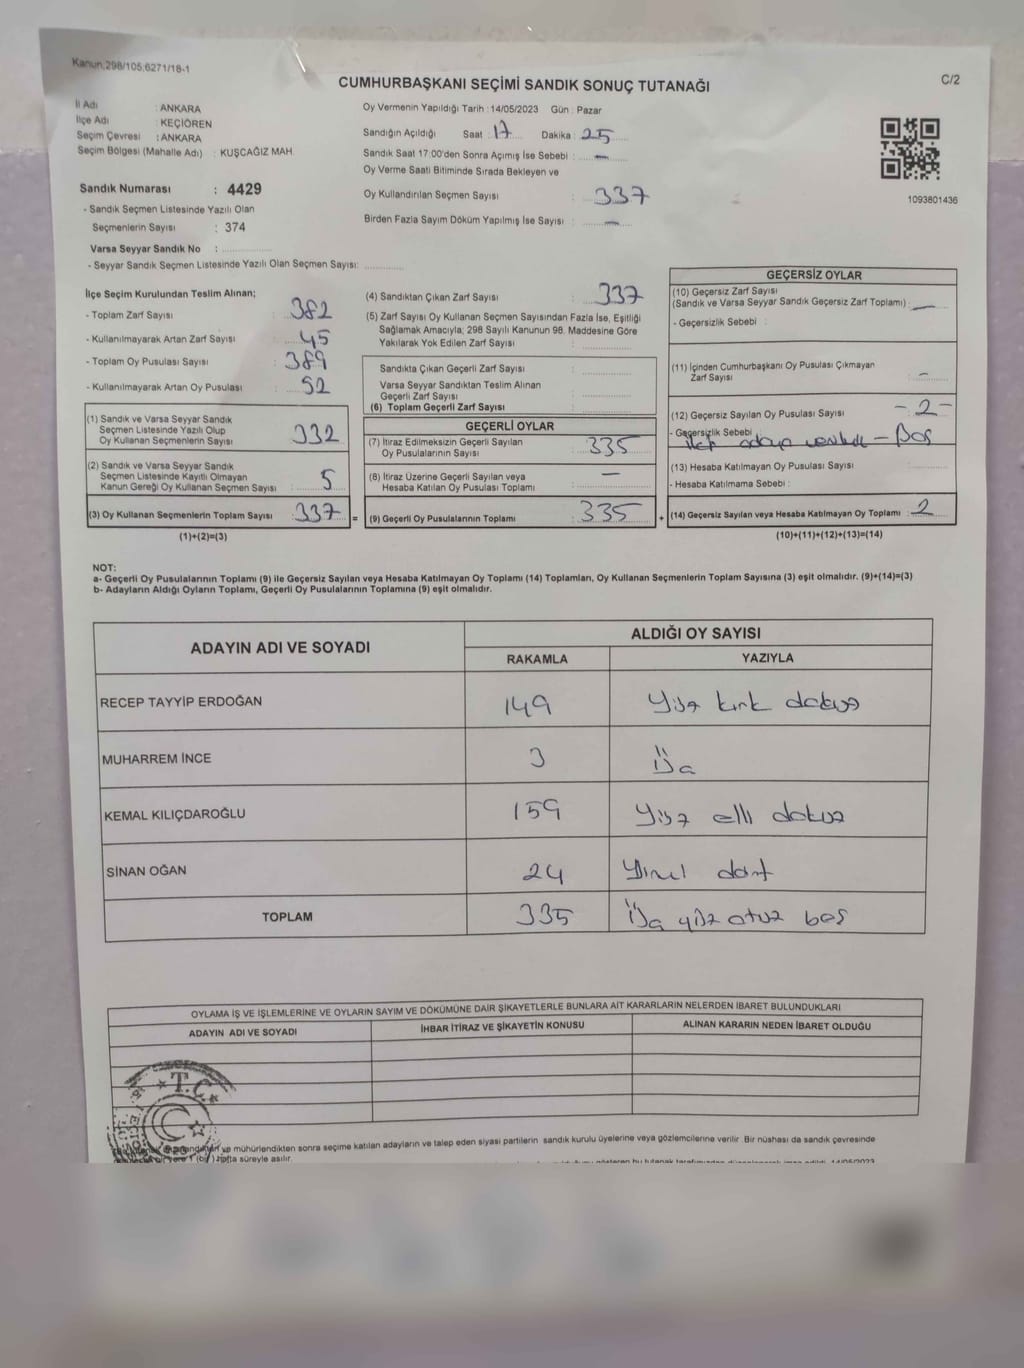 Kanun:298/105;6271/18-1
CUMHURBAŞKANI SEÇİMİ SANDIK SONUÇ TUTANAĞI
C/2
İl Adı : ANKARA
İlçe Adı : KEÇİÖREN
Seçim Çevresi : ANKARA
Seçim Bölgesi (Mahalle Adı) : KUŞCAĞIZ MAH.
Sandık Numarası : 4429
- Sandık Seçmen Listesinde Yazılı Olan
Seçmenlerin Sayısı : 374
Varsa Seyyar Sandık No :
- Seyyar Sandık Seçmen Listesinde Yazılı Olan Seçmen Sayısı:
Oy Vermenin Yapıldığı Tarih :14/05/2023 Gün : Pazar
Sandığın Açıldığı Saat : 17 Dakika : 25
Sandık Saat 17:00'den Sonra Açımış İse Sebebi : —
Oy Verme Saati Bitiminde Sırada Bekleyen ve
Oy Kullandırılan Seçmen Sayısı : 337
Birden Fazla Sayım Döküm Yapılmış İse Sayısı : —
1093801436
İlçe Seçim Kurulundan Teslim Alınan;
- Toplam Zarf Sayısı : 382
- Kullanılmayarak Artan Zarf Sayısı : 45
- Toplam Oy Pusulası Sayısı : 389
- Kullanılmayarak Artan Oy Pusulası : 52
(1) Sandık ve Varsa Seyyar Sandık
Seçmen Listesinde Yazılı Olup
Oy Kullanan Seçmenlerin Sayısı 332
(2) Sandık ve Varsa Seyyar Sandık
Seçmen Listesinde Kayıtlı Olmayan
Kanun Gereği Oy Kullanan Seçmen Sayısı 5
(3) Oy Kullanan Seçmenlerin Toplam Sayısı 337
(1)+(2)=(3)
=
(4) Sandıktan Çıkan Zarf Sayısı : 337
(5) Zarf Sayısı Oy Kullanan Seçmen Sayısından Fazla İse, Eşitliği
Sağlamak Amacıyla; 298 Sayılı Kanunun 98. Maddesine Göre
Yakılarak Yok Edilen Zarf Sayısı
Sandıkta Çıkan Geçerli Zarf Sayısı
Varsa Seyyar Sandıktan Teslim Alınan
Geçerli Zarf Sayısı
(6) Toplam Geçerli Zarf Sayısı
GEÇERLİ OYLAR
(7) İtiraz Edilmeksizin Geçerli Sayılan
Oy Pusulalarının Sayısı 335
(8) İtiraz Üzerine Geçerli Sayılan veya
Hesaba Katılan Oy Pusulası Toplamı —
(9) Geçerli Oy Pusulalarının Toplamı 335
+
GEÇERSİZ OYLAR
(10) Geçersiz Zarf Sayısı
(Sandık ve Varsa Seyyar Sandık Geçersiz Zarf Toplamı) : —
- Geçersizlik Sebebi :
(11) İçinden Cumhurbaşkanı Oy Pusulası Çıkmayan
Zarf Sayısı : —
(12) Geçersiz Sayılan Oy Pusulası Sayısı - 2 -
- Geçersizlik Sebebi — Boş
(13) Hesaba Katılmayan Oy Pusulası Sayısı
- Hesaba Katılmama Sebebi :
(14) Geçersiz Sayılan veya Hesaba Katılmayan Oy Toplamı : 2
(10)+(11)+(12)+(13)=(14)
NOT:
a- Geçerli Oy Pusulalarının Toplamı (9) ile Geçersiz Sayılan veya Hesaba Katılmayan Oy Toplamı (14) Toplamları, Oy Kullanan Seçmenlerin Toplam Sayısına (3) eşit olmalıdır. (9)+(14)=(3)
b- Adayların Aldığı Oyların Toplamı, Geçerli Oy Pusulalarının Toplamına (9) eşit olmalıdır.
ADAYIN ADI VE SOYADI
ALDIĞI OY SAYISI
RAKAMLA YAZIYLA
RECEP TAYYİP ERDOĞAN 149 Yüz kırk dokuz
MUHARREM İNCE 3 Üç
KEMAL KILIÇDAROĞLU 159 Yüz elli dokuz
SİNAN OĞAN 24 Yirmi dört
TOPLAM 335 Üç yüz otuz beş
OYLAMA İŞ VE İŞLEMLERİNE VE OYLARIN SAYIM VE DÖKÜMÜNE DAİR ŞİKAYETLERLE BUNLARA AİT KARARLARIN NELERDEN İBARET BULUNDUKLARI
ADAYIN ADI VE SOYADI İHBAR İTİRAZ VE ŞİKAYETİN KONUSU ALINAN KARARIN NEDEN İBARET OLDUĞU
T.C.
ve mühürlendikten sonra seçime katılan adayların ve talep eden siyasi partilerin sandık kurulu üyelerine veya gözlemcilerine verilir. Bir nüshası da sandık çevresinde
hafta süreyle asılır.